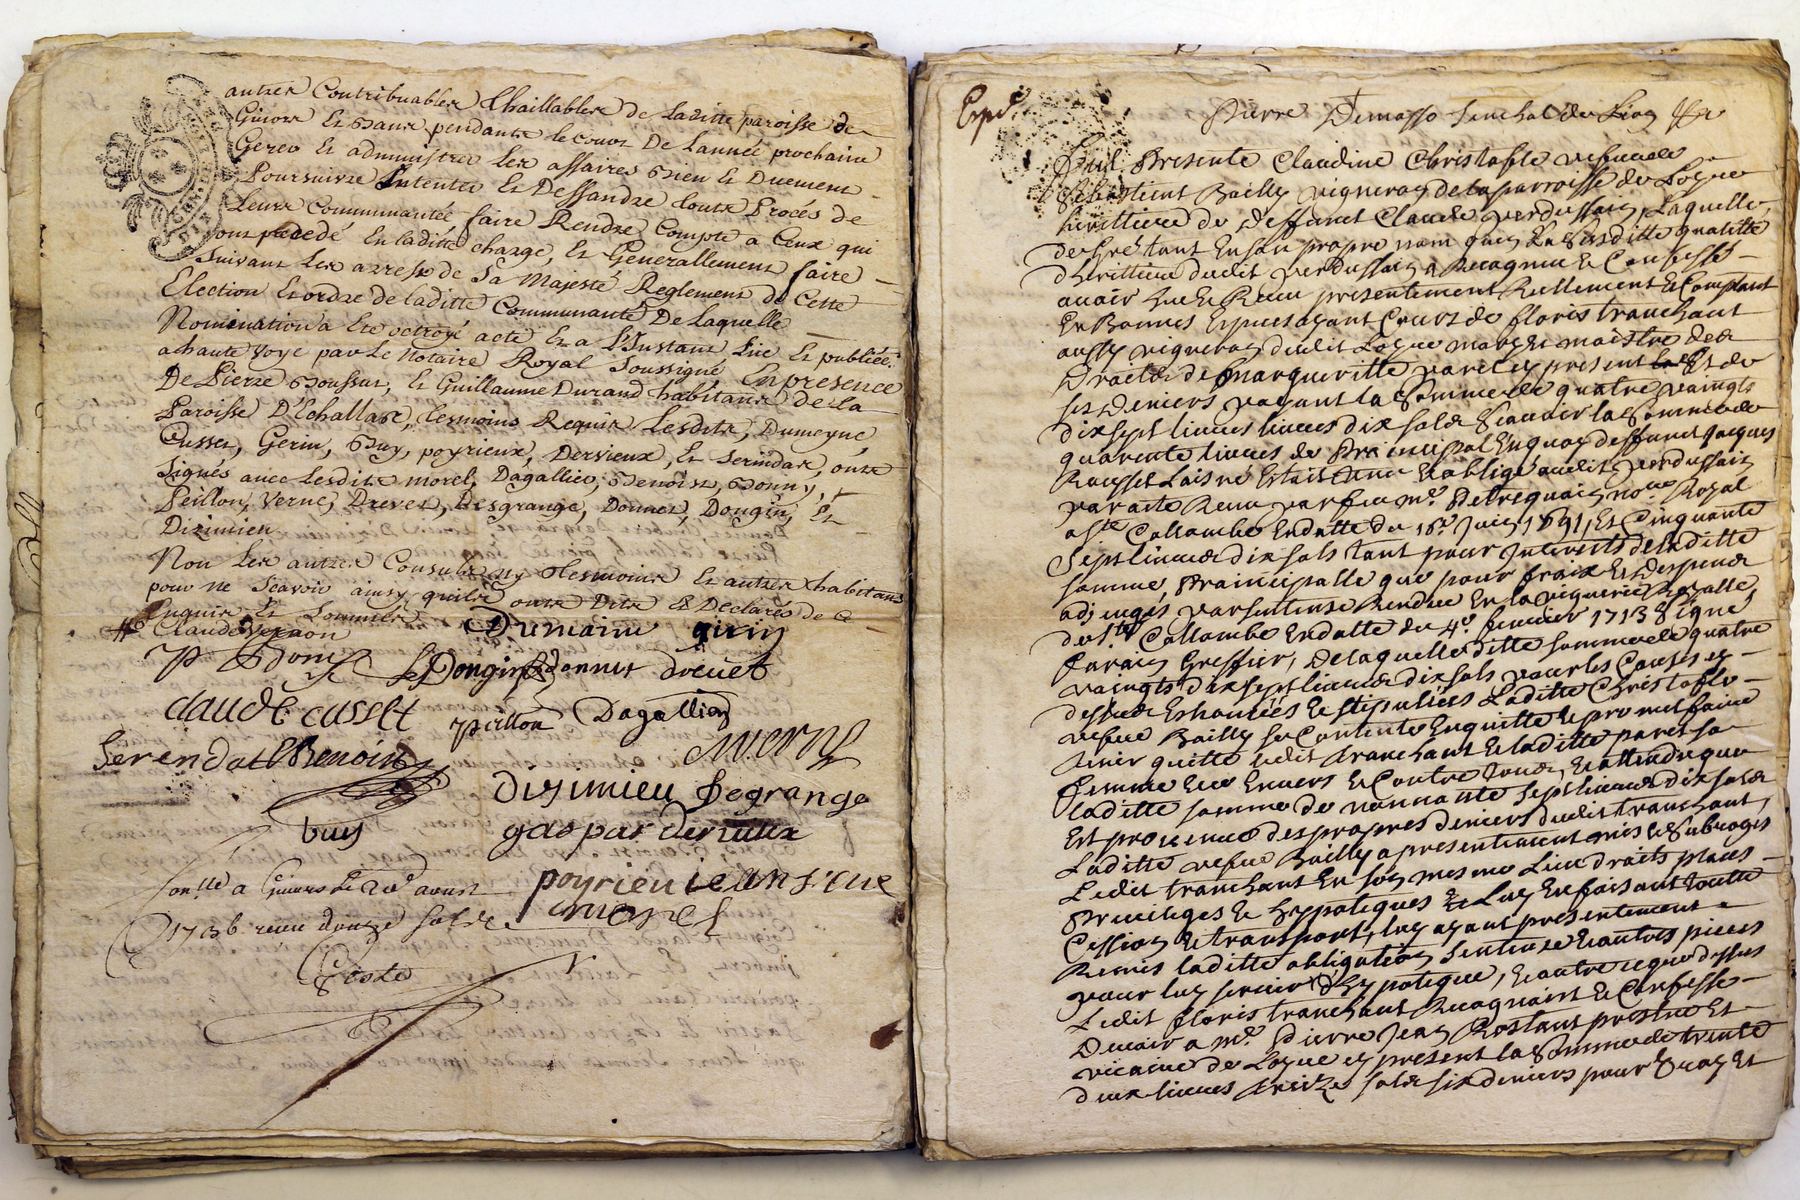 autres Contribuables thaillables de laditte paroisse de
Givors Et Dans pendante le Cours De Lannée prochaine
Gerer Et administrer Les affaires Bien Et Duement
Poursuivre Intenter Et Deffandre touts Procés de
Leurs Communautée faire Rendre Compte a Ceux qui
ont precedé En laditte charge, Et Generallement faire
Suivant Les arrests de Sa Majesté Reglement de Cette
Election Et ordre de laditte Communauté De laquelle
Nomination a Ete octroyé acte Et a l'Instant Lüe Et publiée
a haute voye par Le Notaire Royal Soussigné En presence
De Pierre Et Guillaume Durand habitans de la
Paroisse D'Echallas, tesmoins Requis Lesdits, Dumeyne
Cusset, Gerin, Buy, poyrieux, Dervieux, Et Serindat, onts
Signés avec Lesdits morel, Dagallier, Benoist, Bonny,
Peillon, Verne, Drevet, Desgrange, Donnet, Dongin, Et
Dizimieu
Non Les autres Consuls ny tesmoins Et autres habitans
pour ne Scavoir ainsy quils onts Dits Et Declarés de ce
Enquis Et Sommés
Claude
Dumaine girin
P Bony Dongin donnet drevet
claude cusset peillon Dagallier
Serendat Benoist verne
Dizimieu Degrange
buy gaspar dervieux
Con.lle a Givors Le 20e aoust poyrieu
1736 receu douze sols morel
Coste
Expé.
Pierre
Fut Presente Claudine Christofle vefve de
Bailly vigneron de la parroisse de
herittiere de deffunct Claude verdussain, Laquelle
de gré tant En son propre nom quen La susditte qualitté
dherittiere dudit verdussain a Recognu Et Confessé
avoir heu Et Receu presentement Reellement Et Comptant
En Bonnes Espèces ayant Cours de floris tranchant
aussy vigneron dudit mary Et maistre des
Droits de Margueritte varet icy present Et de
ses Deniers payant la Somme de quatre vaingts
dix sept livres livres dix sols Scavoir la Somme de
quarente livres de Prainsipal En quoy deffunct Jacques
Rousset Laisné Estoit tenu Et obligé audit verdussain
par acte Receu par feu Mr. nore Royal
a Ste Collombe En datte du 18e Juin 1691, Et Cinquante
Sept livres dix sols tant pour Interests de laditte
somme, Prainsipalle que pour fraix Et Despends
adjugés par sentense Rendue En la viguerie Royalle
de Ste Collombe En datte du 4e fevrier 1713 Signé
Greffier, De laquelle ditte somme de quatre
vaingts dix sept livres dix sols pour les Causes cy
dessus Enhancées Et stipulées Laditte Christofle
vefve Bailly se Contente En quitte Et promet faire
tenir quitte ledit tranchant Et laditte varet sa
femme Envers Et Contre tous, Et attendu que
laditte somme de nonnante Sept livres dix sols
Est provenue des propres deniers dudit tranchant,
Laditte vefve Bailly a presentement mis Et Subrogés
Ledit tranchant En son mesme Lieu droits places
Privileges Et hypoteques En Luy En faisant toutte
Cession Et transport, luy ayant presentement
Remis laditte obligation, Sentense Et autres pieces
pour luy servir dhypoteque, Et outre ce que dessus
Ledit floris tranchant Recognoist Et Confesse
Devoir a Mr. Pierre Jean Rostant prestre Et
vicaire de icy present la Somme de trente
deux livres treize sols six deniers pour